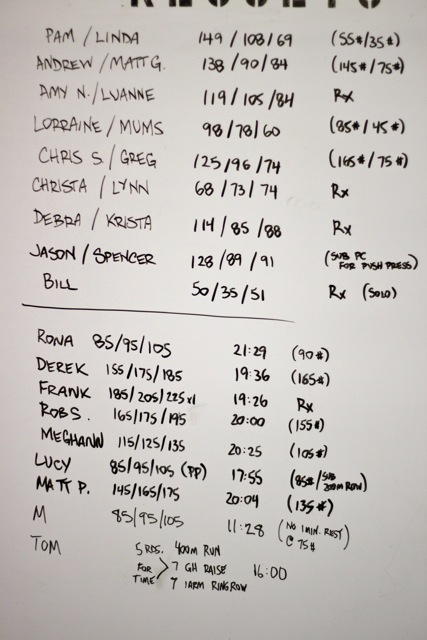 RESULTS
PAM / LINDA 149 / 108 / 69 (55# / 35#)
ANDREW / MATT G. 138 / 90 / 84 (145# / 75#)
AMY N. / LUANNE 119 / 105 / 84 Rx
LORRAINE / MUMS 98 / 78 / 60 (85# / 45#)
CHRIS S / GREG 125 / 96 / 74 (165# / 75#)
CHRISTA / LYNN 68 / 73 / 74 Rx
DEBRA / KRISTA 114 / 85 / 88 Rx
JASON / SPENCER 128 / 89 / 91 (SUB PC FOR PUSH PRESS)
BILL 50 / 35 / 51 Rx (SOLO)
RONA 85/95/105 21:29 (90#)
DEREK 155/175/185 19:36 (165#)
FRANK 185/205/225x1 19:26 Rx
ROB S. 165/175/195 20:00 (155#)
MEGHANN 115/125/135 20:25 (105#)
LUCY 85/95/105 (PP) 17:55 (85# / SUB 200M ROW)
MATT P. 145/165/175 20:04 (135#)
M 85/95/105 11:28 (NO 1 MIN. REST @ 75#)
TOM 5 RDS. FOR TIME 400M RUN
7 GH RAISE 16:00
7 1ARM RINGROW